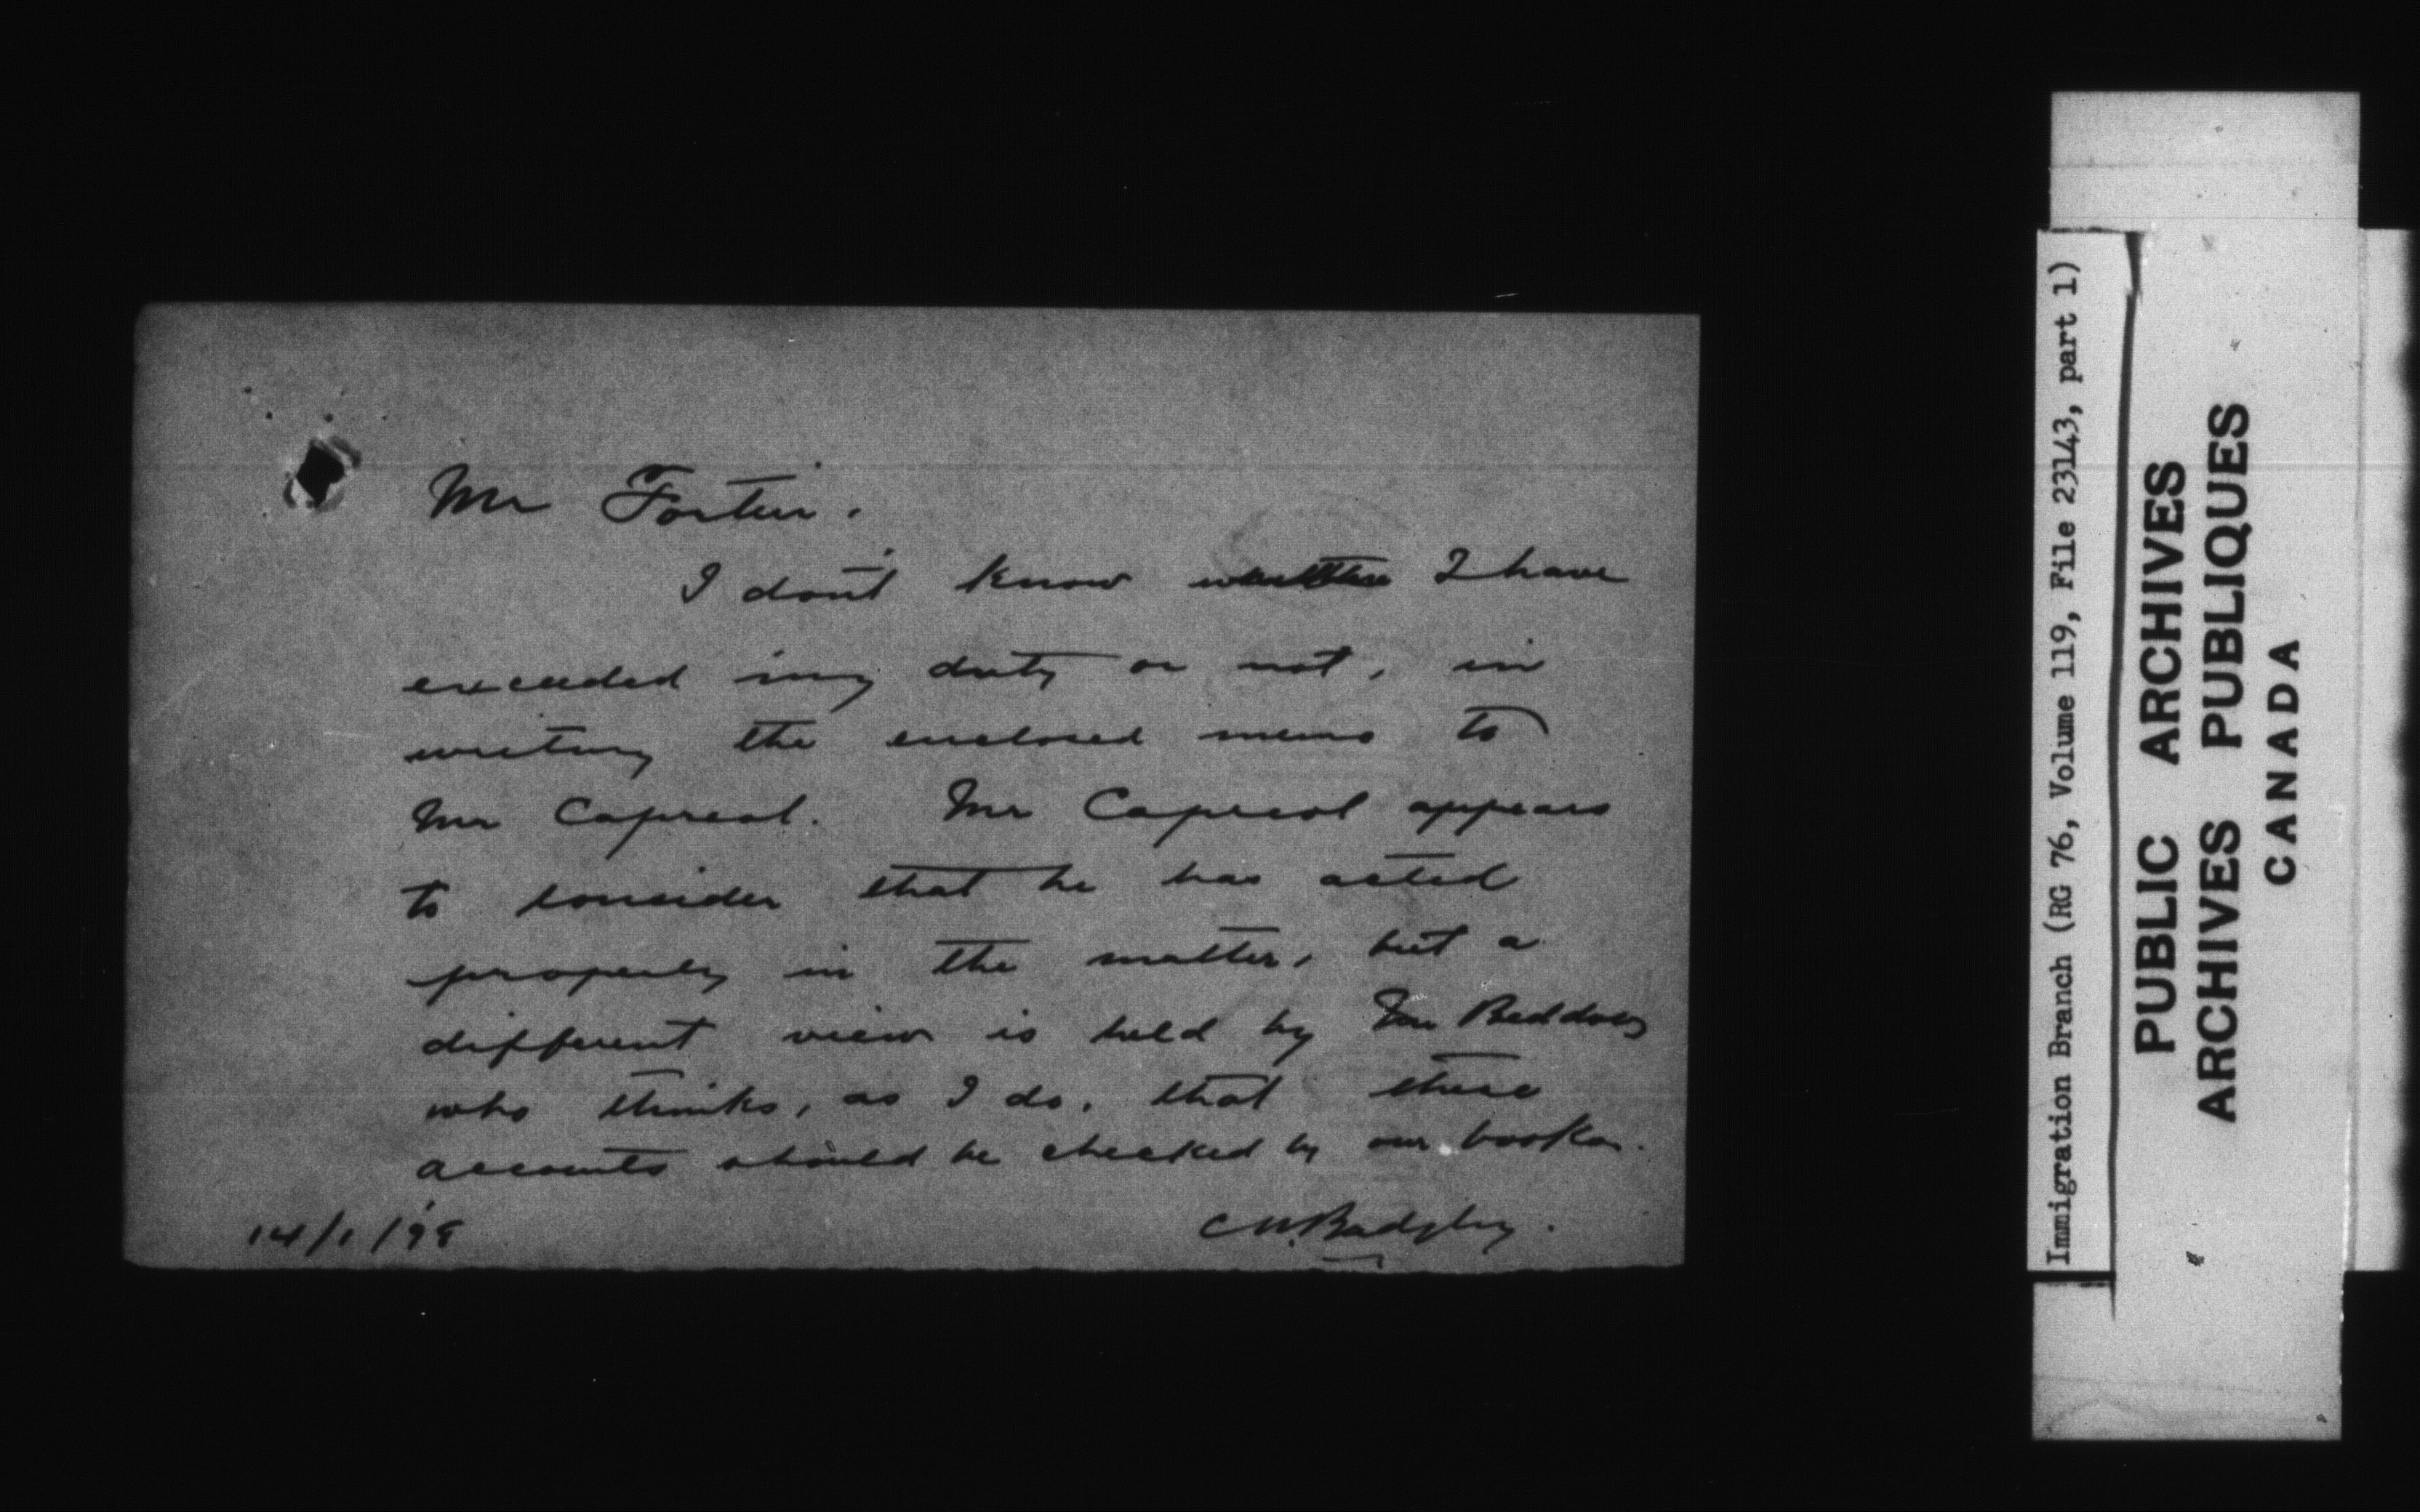 Mr Fortier.
I don't know whether I have
exceeded my duty or not, in
writing the enclosed memo to
Mr Capreol. Mr Capreol appears
to consider that he has acted
properly in the matter, but a
different view is held by Mr Beddoes
who thinks, as I do, that these
accounts should be checked by our books.
C W. Badgley.
14/1/'98
Immigration Branch (RG 76, Volume 119, File 23143, part 1)
PUBLIC ARCHIVES
ARCHIVES PUBLIQUES
CANADA